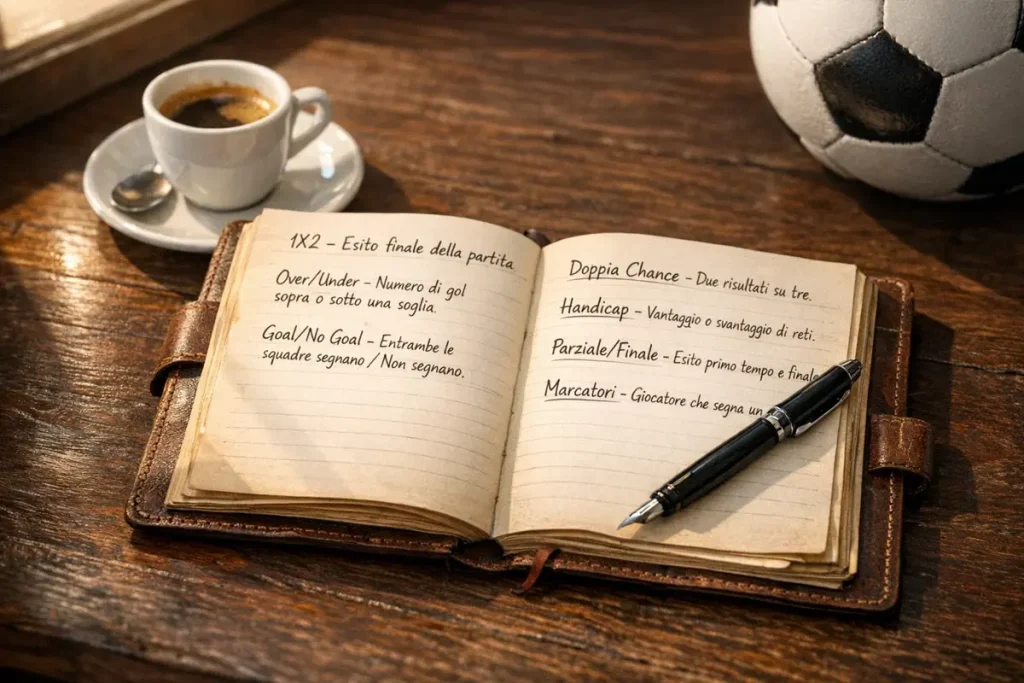 1X2 – Esito finale della partita
Over/Under – Numero di gol
sopra o sotto una soglia.
Goal/No Goal – Entrambe le
squadre segnano / Non segnano.
Doppia Chance – Due risultati su tre.
Handicap – Vantaggio o svantaggio di reti.
Parziale/Finale – Esito primo tempo e finale
Marcatori – Giocatore che segna un